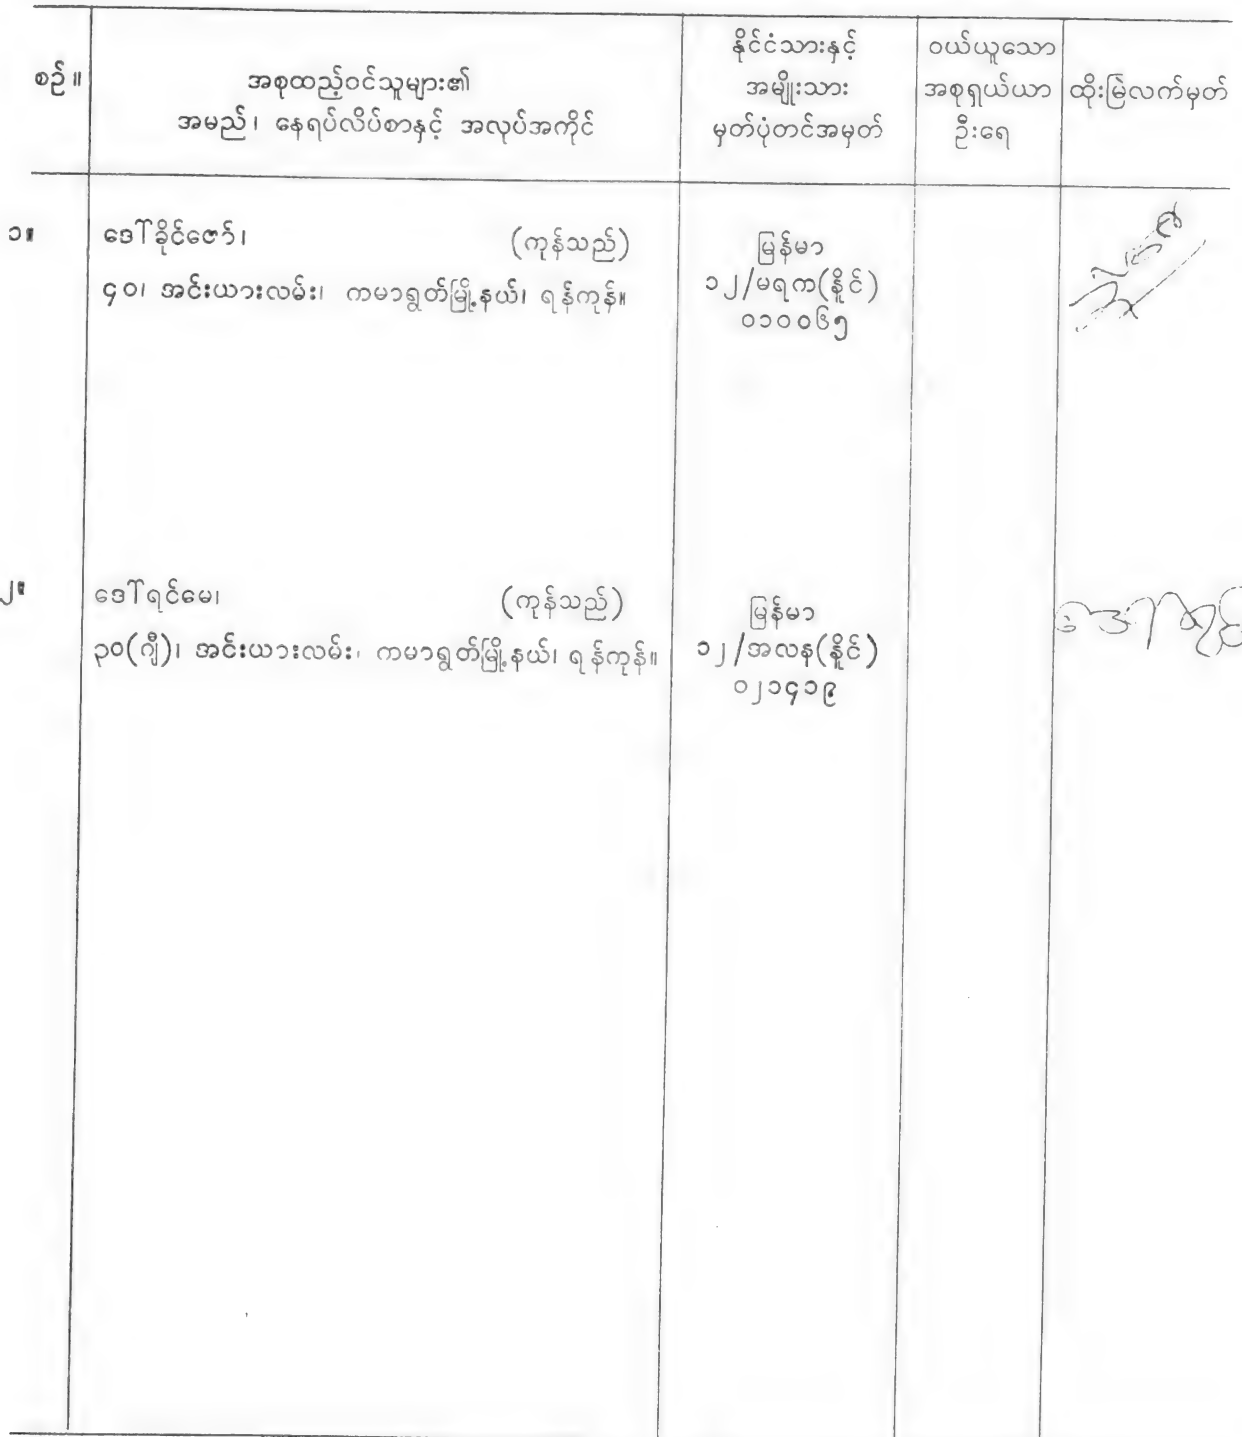 စဉ်။
အစုထည့်ဝင်သူများ၏
အမည်၊ နေရပ်လိပ်စာနှင့် အလုပ်အကိုင်
နိုင်ငံသားနှင့်
အမျိုးသား
မှတ်ပုံတင်အမှတ်
ဝယ်ယူသော
အစုရှယ်ယာ
ဦးရေ
ထိုးမြဲလက်မှတ်
၁။
ဒေါ်ခိုင်ဇော်၊ (ကုန်သည်)
၄၀၊ အင်းယားလမ်း၊ ကမာရွတ်မြို့နယ်၊ ရန်ကုန်။
မြန်မာ
၁၂/မရက(နိုင်)
၀၁၀၀၆၅
၂။
ဒေါ်ရင်မေ၊ (ကုန်သည်)
၃၀(ဂျီ)၊ အင်းယားလမ်း၊ ကမာရွတ်မြို့နယ်၊ ရန်ကုန်။
မြန်မာ
၁၂/အလန(နိုင်)
၀၂၁၄၁၉